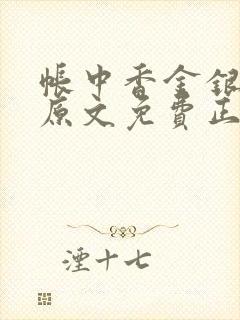 帳中香金銀
原文免費正
湮十七